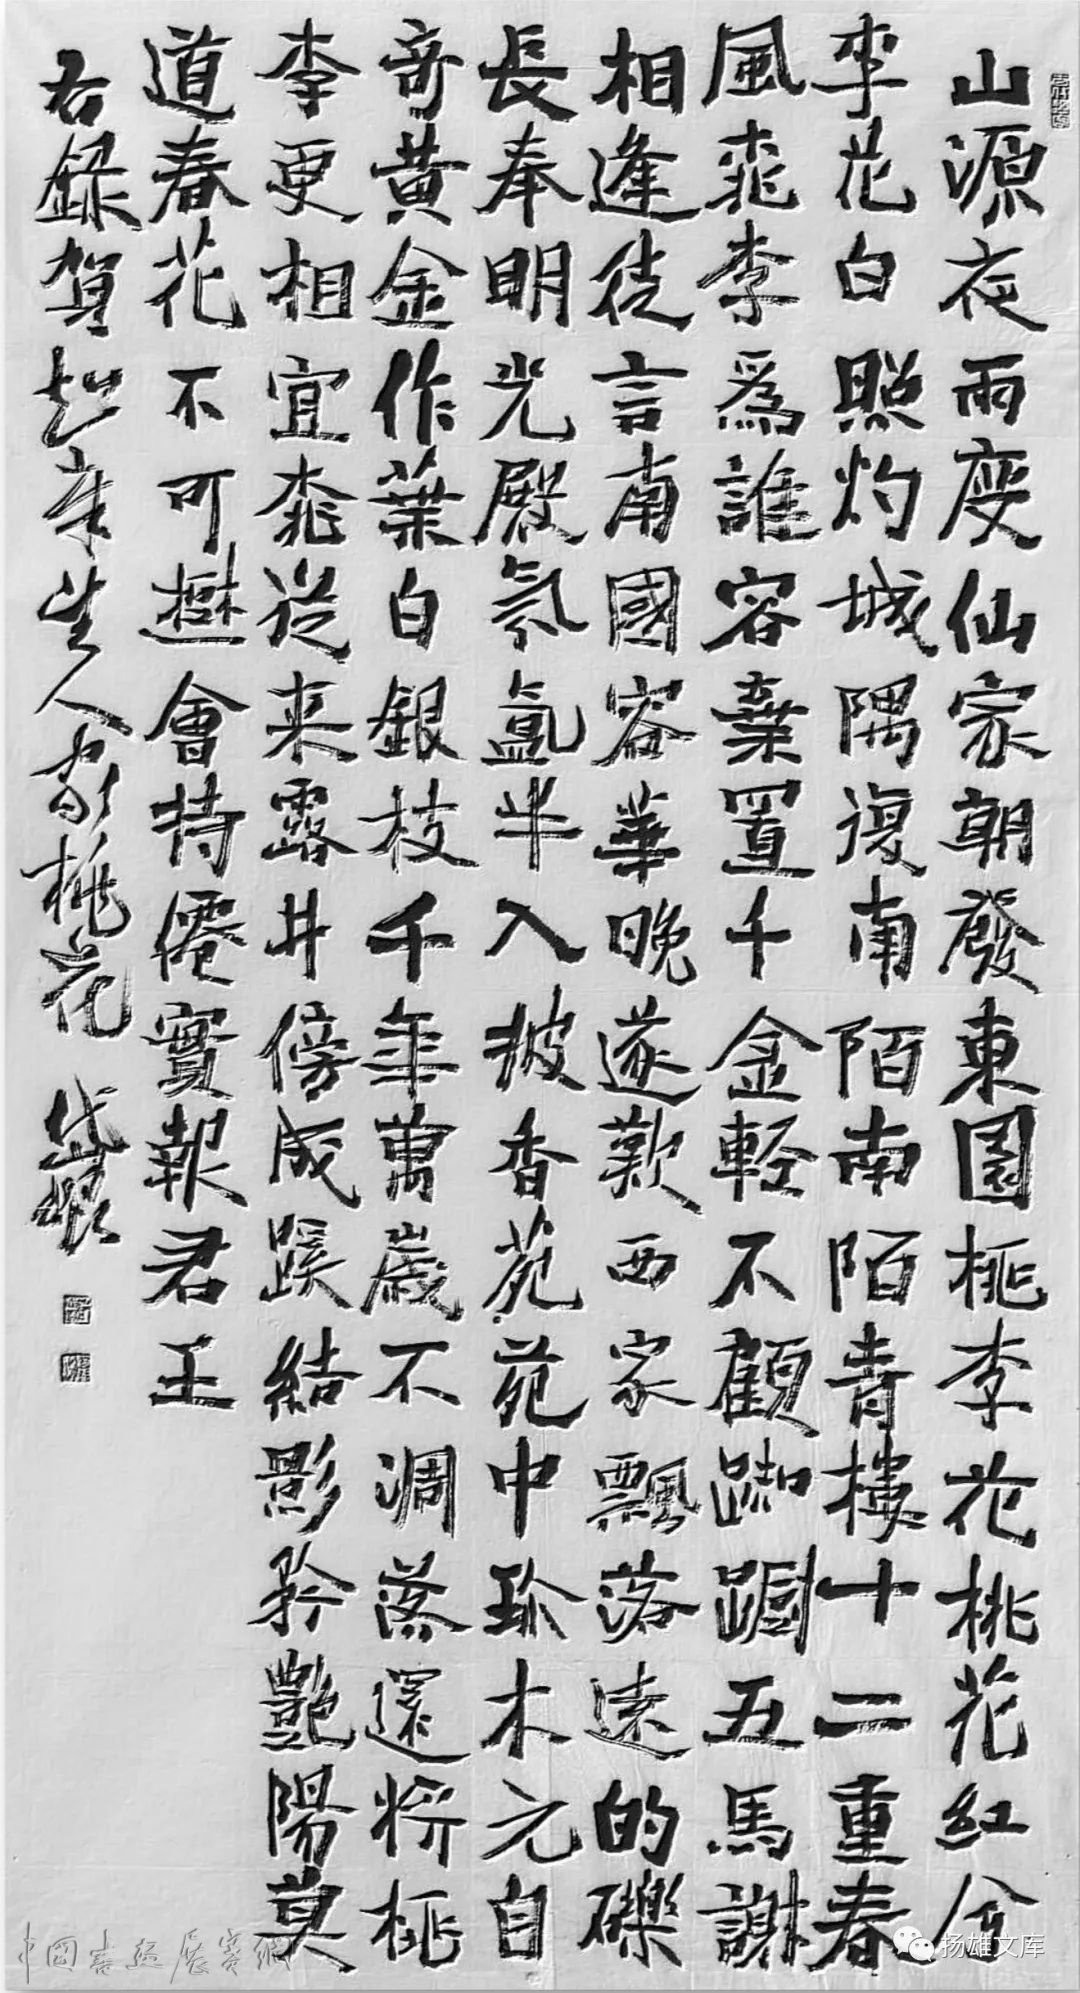 山源夜雨度仙家朝發東園桃李花桃花紅金
李花白照灼城隅復南陌南陌青樓十二重春
風桃李爲誰容棄置千金輕不顧踟躕五馬謝
相逢徒言南國容華晚遂歎西家飄落遠的礫
長奉明光殿氛氳半入披香苑苑中珍木元自
奇黃金作葉白銀枝千年萬歲不凋落還將桃
李更相宜桃從來露井傍成蹊結影矜艷陽莫
道春花不可會持僊實報君王
右錄賀知章望人家桃花
中國書畫展賽網
扬雄文库